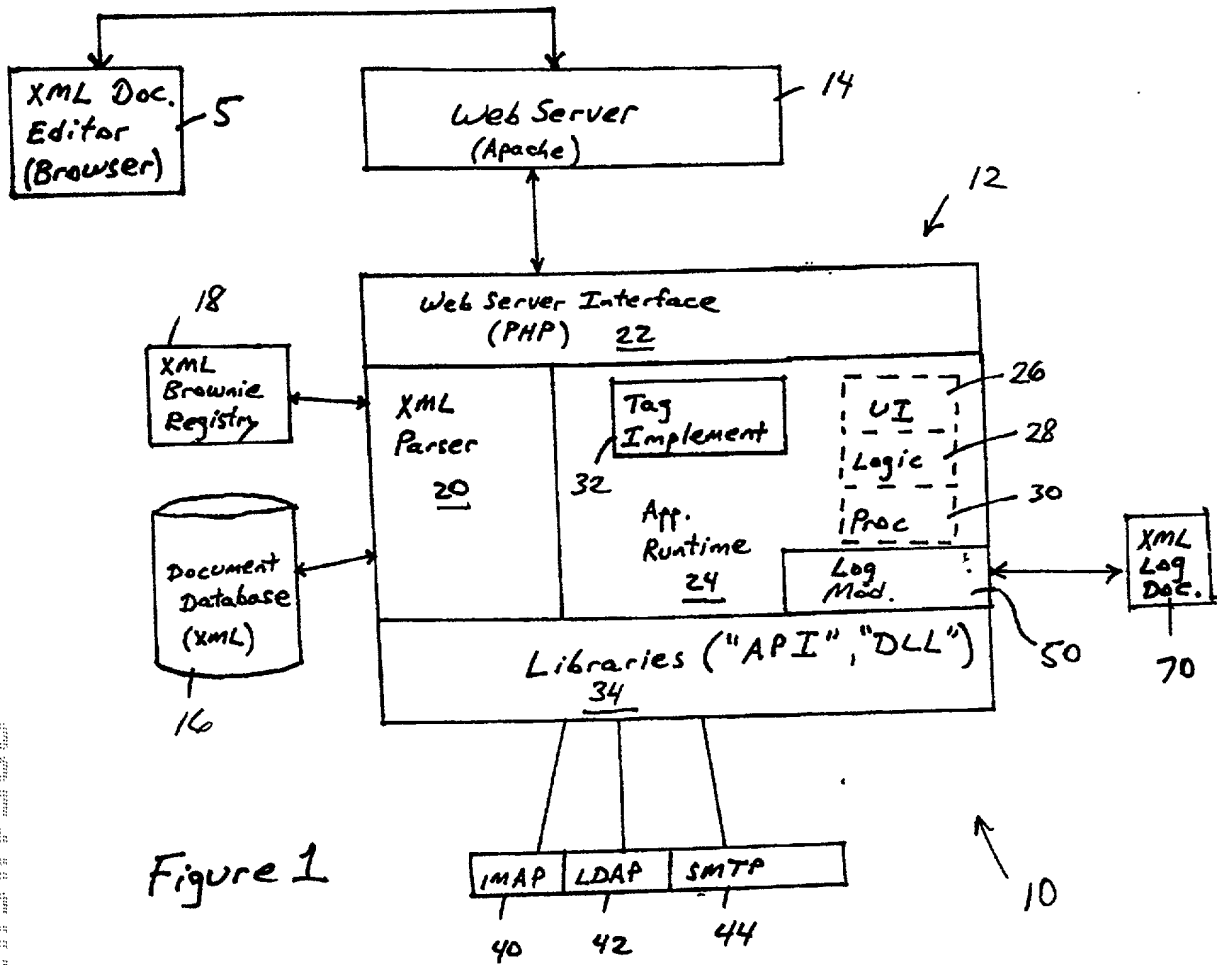 XML Doc.
Editor
(Browser)
5
Web Server
(Apache)
14
12
Web Server Interface
(PHP) 22
18
XML
Brownie
Registry
XML
Parser
20
Tag
Implement
32
26
UI
28
Logic
30
Proc
App.
Runtime
24
Log
Mod.
50
XML
Log
Doc.
70
Document
Database
(XML)
16
Libraries ("API","DLL")
34
IMAP LDAP SMTP
40 42 44
10
Figure 1